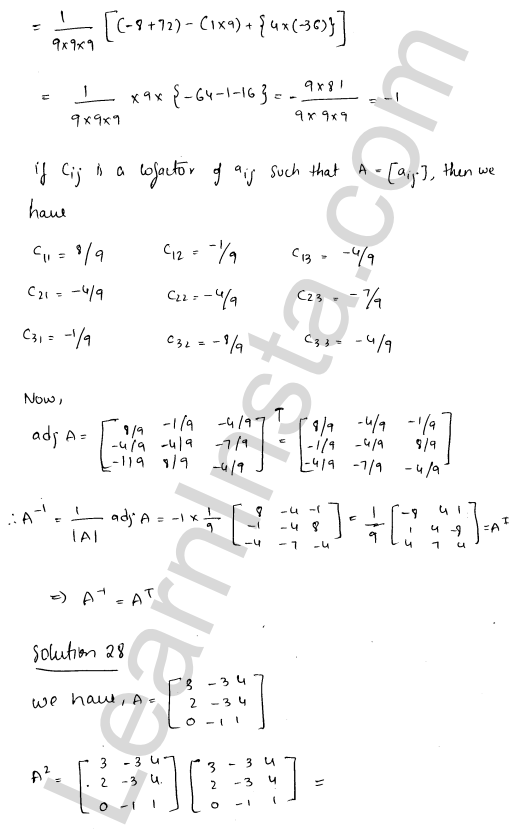 = 1/(9×9×9) [(-8+72) - (1×9) + {4×(-36)}]
= 1/(9×9×9) × 9 × {-64-1-16} = - (9×81)/(9×9×9) = -1
if Cij is a cofactor of aij such that A = [aij], then we
have
C11 = 8/9 C12 = -1/9 C13 = -4/9
C21 = -4/9 C22 = -4/9 C23 = -7/9
C31 = -1/9 C32 = -8/9 C33 = -4/9
Now,
adj A = [8/9 -1/9 -4/9; -4/9 -4/9 -7/9; -1/9 8/9 -4/9]^T = [8/9 -4/9 -1/9; -1/9 -4/9 8/9; -4/9 -7/9 -4/9]
∴ A^-1 = 1/|A| adj A = -1 × 1/9 [8 -4 -1; -1 -4 8; -4 -7 -4] = 1/9 [-8 4 1; 1 4 -8; 4 7 4] = A^T
⇒ A^-1 = A^T
Solution 28
we have, A = [3 -3 4; 2 -3 4; 0 -1 1]
A^2 = [3 -3 4; 2 -3 4; 0 -1 1] [3 -3 4; 2 -3 4; 0 -1 1] =
LearnInsta.com